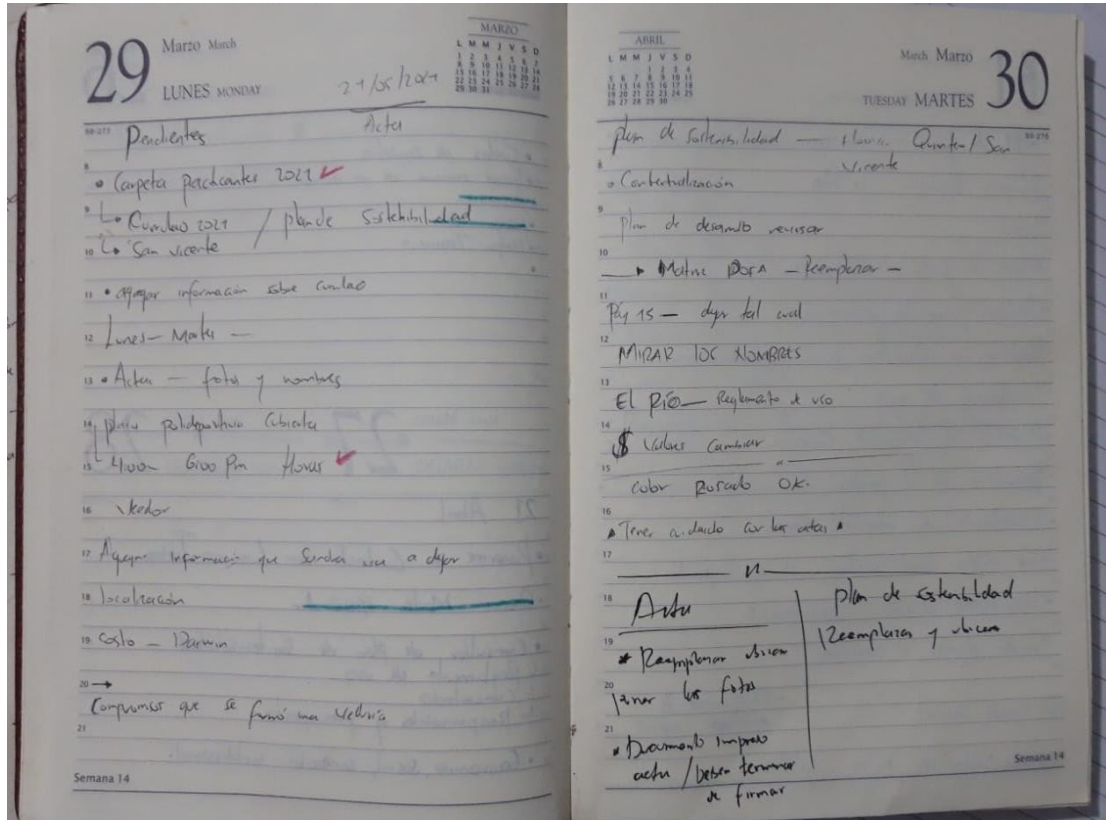 29 Marzo March
LUNES MONDAY
MARZO
L M M J V S D
1 2 3 4 5 6 7
8 9 10 11 12 13 14
15 16 17 18 19 20 21
22 23 24 25 26 27 28
29 30 31
21/05/2021
88-277
Pendientes
Acta
8
• Carpeta 2021 ✓
9
↳ Curulao 2021 / plan de Sostenibilidad
10
↳ San Vicente
11
• agregar información sobre curulao
12
Lunes - Martes -
13
• Actas - fotos y nombres
14
placa polideportiva Cubierta
15
4:00 - 6:00 Pm Horas ✓
16
17
Agregar información que Sandra va a dejar
18
localización
19
Costo - Darwin
20 →
Compromisos que se formó una veeduría
21
Semana 14
ABRIL
L M M J V S D
1 2 3 4
5 6 7 8 9 10 11
12 13 14 15 16 17 18
19 20 21 22 23 24 25
26 27 28 29 30
March Marzo 30
TUESDAY MARTES
plan de Sostenibilidad — San
Vicente
8
• Contextualización
9
plan de desarrollo revisar
10
→ Matriz DOFA - Reemplazar -
11
Pág 15 — dejar tal cual
12
MIRAR LOS NOMBRES
13
El RÍO — Reglamento de uso
14
$ Valores Cambiar
15
Color Rosado OK.
16
Tener cuidado con las actas
17
18
Acta
plan de Sostenibilidad
19
Reemplazar y ubicar
* Reemplazar ubicar
20
las fotos
21
• Documento impreso
acta / deben terminar
de firmar
Semana 14